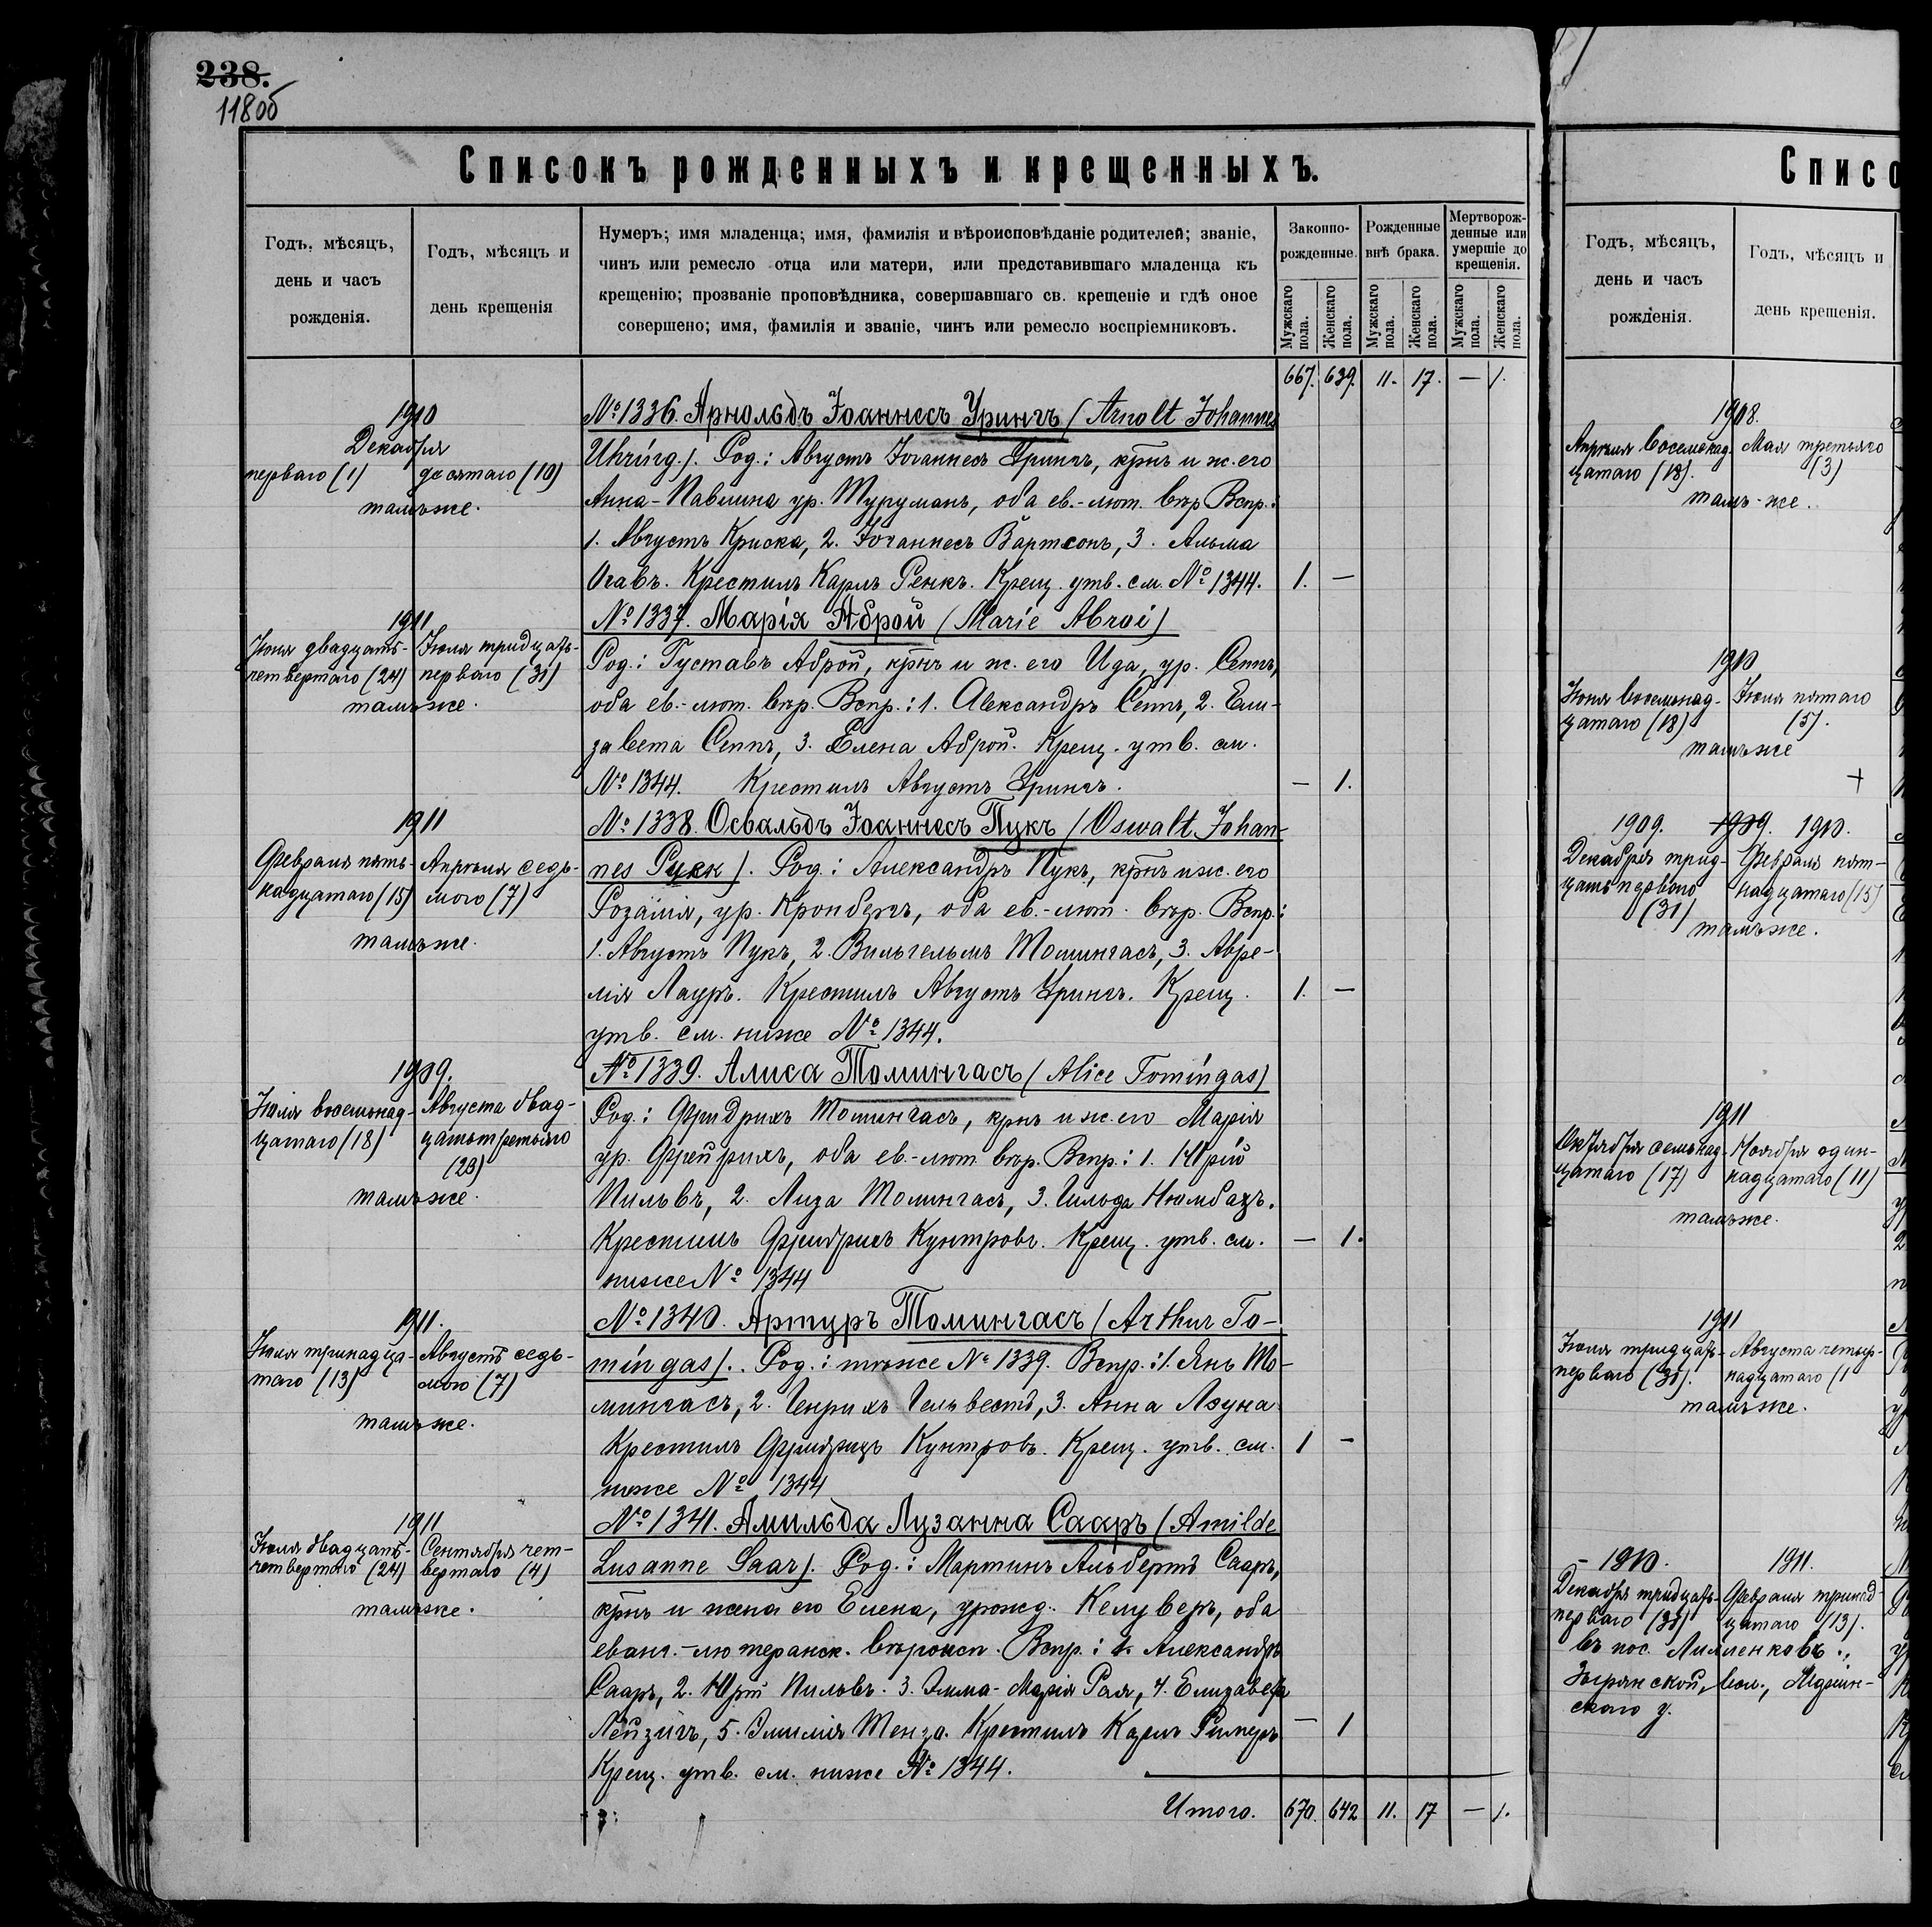 238.
118об
Списокъ рожденныхъ и крещенныхъ.
Годъ, мѣсяцъ, день и часъ рожденія.
Годъ, мѣсяцъ и день крещенія
Нумеръ; имя младенца; имя, фамилія и вѣроисповѣданіе родителей; званіе,
чинъ или ремесло отца или матери, или представившаго младенца къ
крещенію; прозваніе проповѣдника, совершавшаго св. крещеніе и гдѣ оное
совершено; имя, фамилія и званіе, чинъ или ремесло воспріемниковъ.
Законно-рожденные.
Рожденные внѣ брака.
Мертворож-денные или умершіе до крещенія.
Мужскаго пола.
Женскаго пола.
Мужскаго пола.
Женскаго пола.
Мужскаго пола.
Женскаго пола.
667. 639. 11. 17. — 1.
1910
Декабря
перваго (1) десятаго (10)
тамъже.
№ 1336. Арнольдъ Іоаннесъ Урингъ (Arnolt Johannes
Uhring). Род.: Августъ Іоганнесъ Урингъ, крнъ и ж. его
Анна-Павлина ур. Туруманъ, оба ев.-лют. вѣр Вспр.:
1. Августъ Криска, 2. Іоганнесъ Вартсонъ, 3. Альма
Огавъ. Крестилъ Карлъ Ренкъ. Крещ. утв. см. № 1344. 1. —
1911
Іюня двадцать- Іюля тридцать-
четвертаго (24) перваго (31)
тамъже.
№ 1337. Марія Аброй (Marie Abroi)
Род.: Густавъ Аброй, крнъ и ж. его Ида, ур. Сеппъ,
оба ев.-лют. вѣр. Вспр.: 1. Александръ Сеппъ, 2. Ели-
завета Сеппъ, 3. Елена Аброй. Крещ. утв. см.
№ 1344. Крестилъ Августъ Урингъ. — 1.
1911
Февраля пять- Апрѣля седь-
надцатаго (15) мого (7)
тамъже.
№ 1338. Освальдъ Іоаннесъ Пукъ (Oswalt Johan-
nes Puck). Род.: Александръ Пукъ, крнъ и ж. его
Розалія, ур. Кронбергъ, оба ев.-лют. вѣр. Вспр.:
1. Августъ Пукъ, 2. Вильгельмъ Томингасъ, 3. Авре-
лія Лауръ. Крестилъ Августъ Урингъ. Крещ. 1. —
утв. см. ниже № 1344.
1909.
Іюля восемнад- Августа двад-
цатаго (18) цатьтретьяго
(23)
тамъже.
№ 1339. Алиса Томингасъ (Alice Tomingas)
Род.: Фридрихъ Томингасъ, крнъ и ж. его Марія
ур. Фрейрихъ, оба ев.-лют. вѣр. Вспр.: 1. Юрій
Пильвъ, 2. Лиза Томингасъ, 3. Гильда Нюмбахъ.
Крестилъ Фридрихъ Кунтровъ. Крещ. утв. см. — 1.
ниже № 1344
1911.
Іюля тринадца- Августъ седь-
таго (13) мого (7)
тамъже.
№ 1340. Артуръ Томингасъ (Arthur To-
mingas). Род.: тѣже № 1339. Вспр.: 1. Янъ То-
мингасъ, 2. Генрихъ Гельвестъ, 3. Анна Лауна
Крестилъ Фридрихъ Кунтровъ. Крещ. утв. см. 1 —
ниже № 1344
1911
Іюля двадцать- Сентября чет-
четвертаго (24) вертаго (4)
тамъже.
№ 1341. Амильда Лузанна Сааръ (Amilde
Lusanne Saar). Род.: Мартинъ Альбертъ Сааръ,
крнъ и жена его Елена, урожд. Келуверъ, оба
еванг.-лютеранск. вѣроисп. Вспр.: 1. Александръ
Сааръ, 2. Юрій Пильвъ. 3. Эмма-Марія Рая, 4. Елизавета
Лейзигъ, 5. Эмилія Менза. Крестилъ Карлъ Римеръ — 1
Крещ. утв. см. ниже № 1344.
Итого. 670. 642 11. 17 — 1.
Списо
Годъ, мѣсяцъ, день и часъ рожденія.
Годъ, мѣсяцъ и день крещенія.
1908.
Апрѣля восемнад- Мая третьяго
цатаго (18). (3)
тамъ-же.
1910
Іюня восемнад- Іюля пятаго
цатаго (18) (5).
тамъже
+
1909. 1909. 1910.
Декабря трид- Февраля пят-
цать перваго надцатаго (15)
(31)
тамъже.
1911
Октября семнад- Ноября один-
цатаго (17) надцатаго (11)
тамъже.
1911
Іюля тридцать- Августа четыр-
перваго (31). надцатаго (1
тамъже.
- 1910. 1911.
Декабря тридцать- Февраля тринад-
перваго (31) цатаго (13).
въ пос. Лилленковъ.,
Зырянской, вол.,
скаго у.